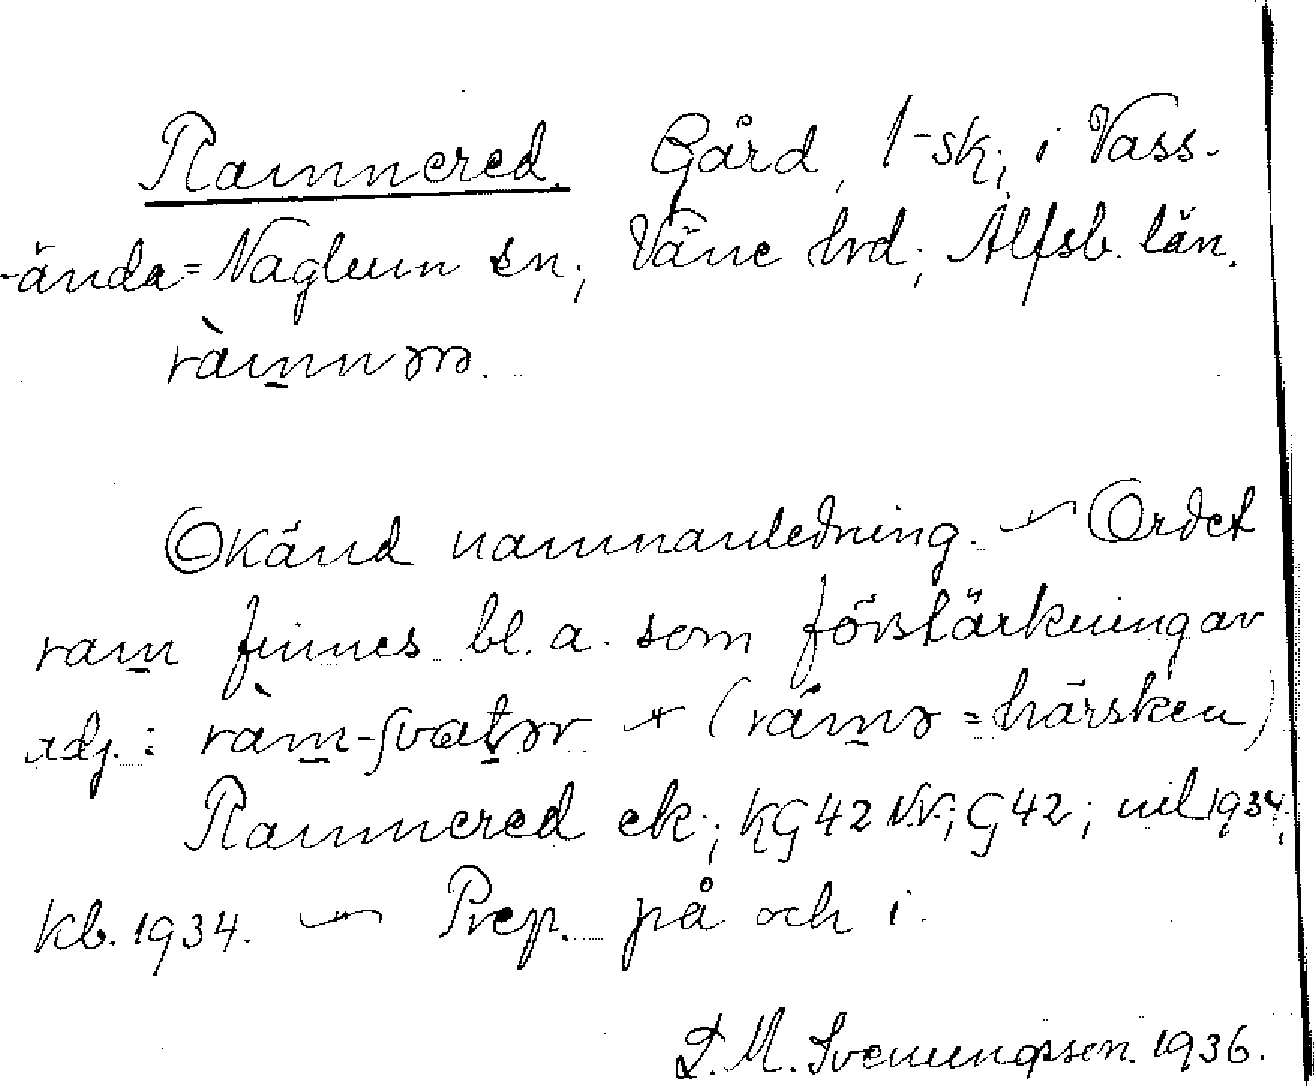 Ramnered. Gård, 1-sk; i Vass-
-ända-Naglum sn; Väne hrd; Älfsb. län.
ràmnəre.
Okänd namnanledning. — Ordet
ram finnes bl. a. som förstärkning av
adj.: ràm-svatər (rämə = härsken)
Ramnered ek; KG42NV; G42; uil 1934;
Kb. 1934. — Prep. på och i.
D. M. Svenungsson. 1936.